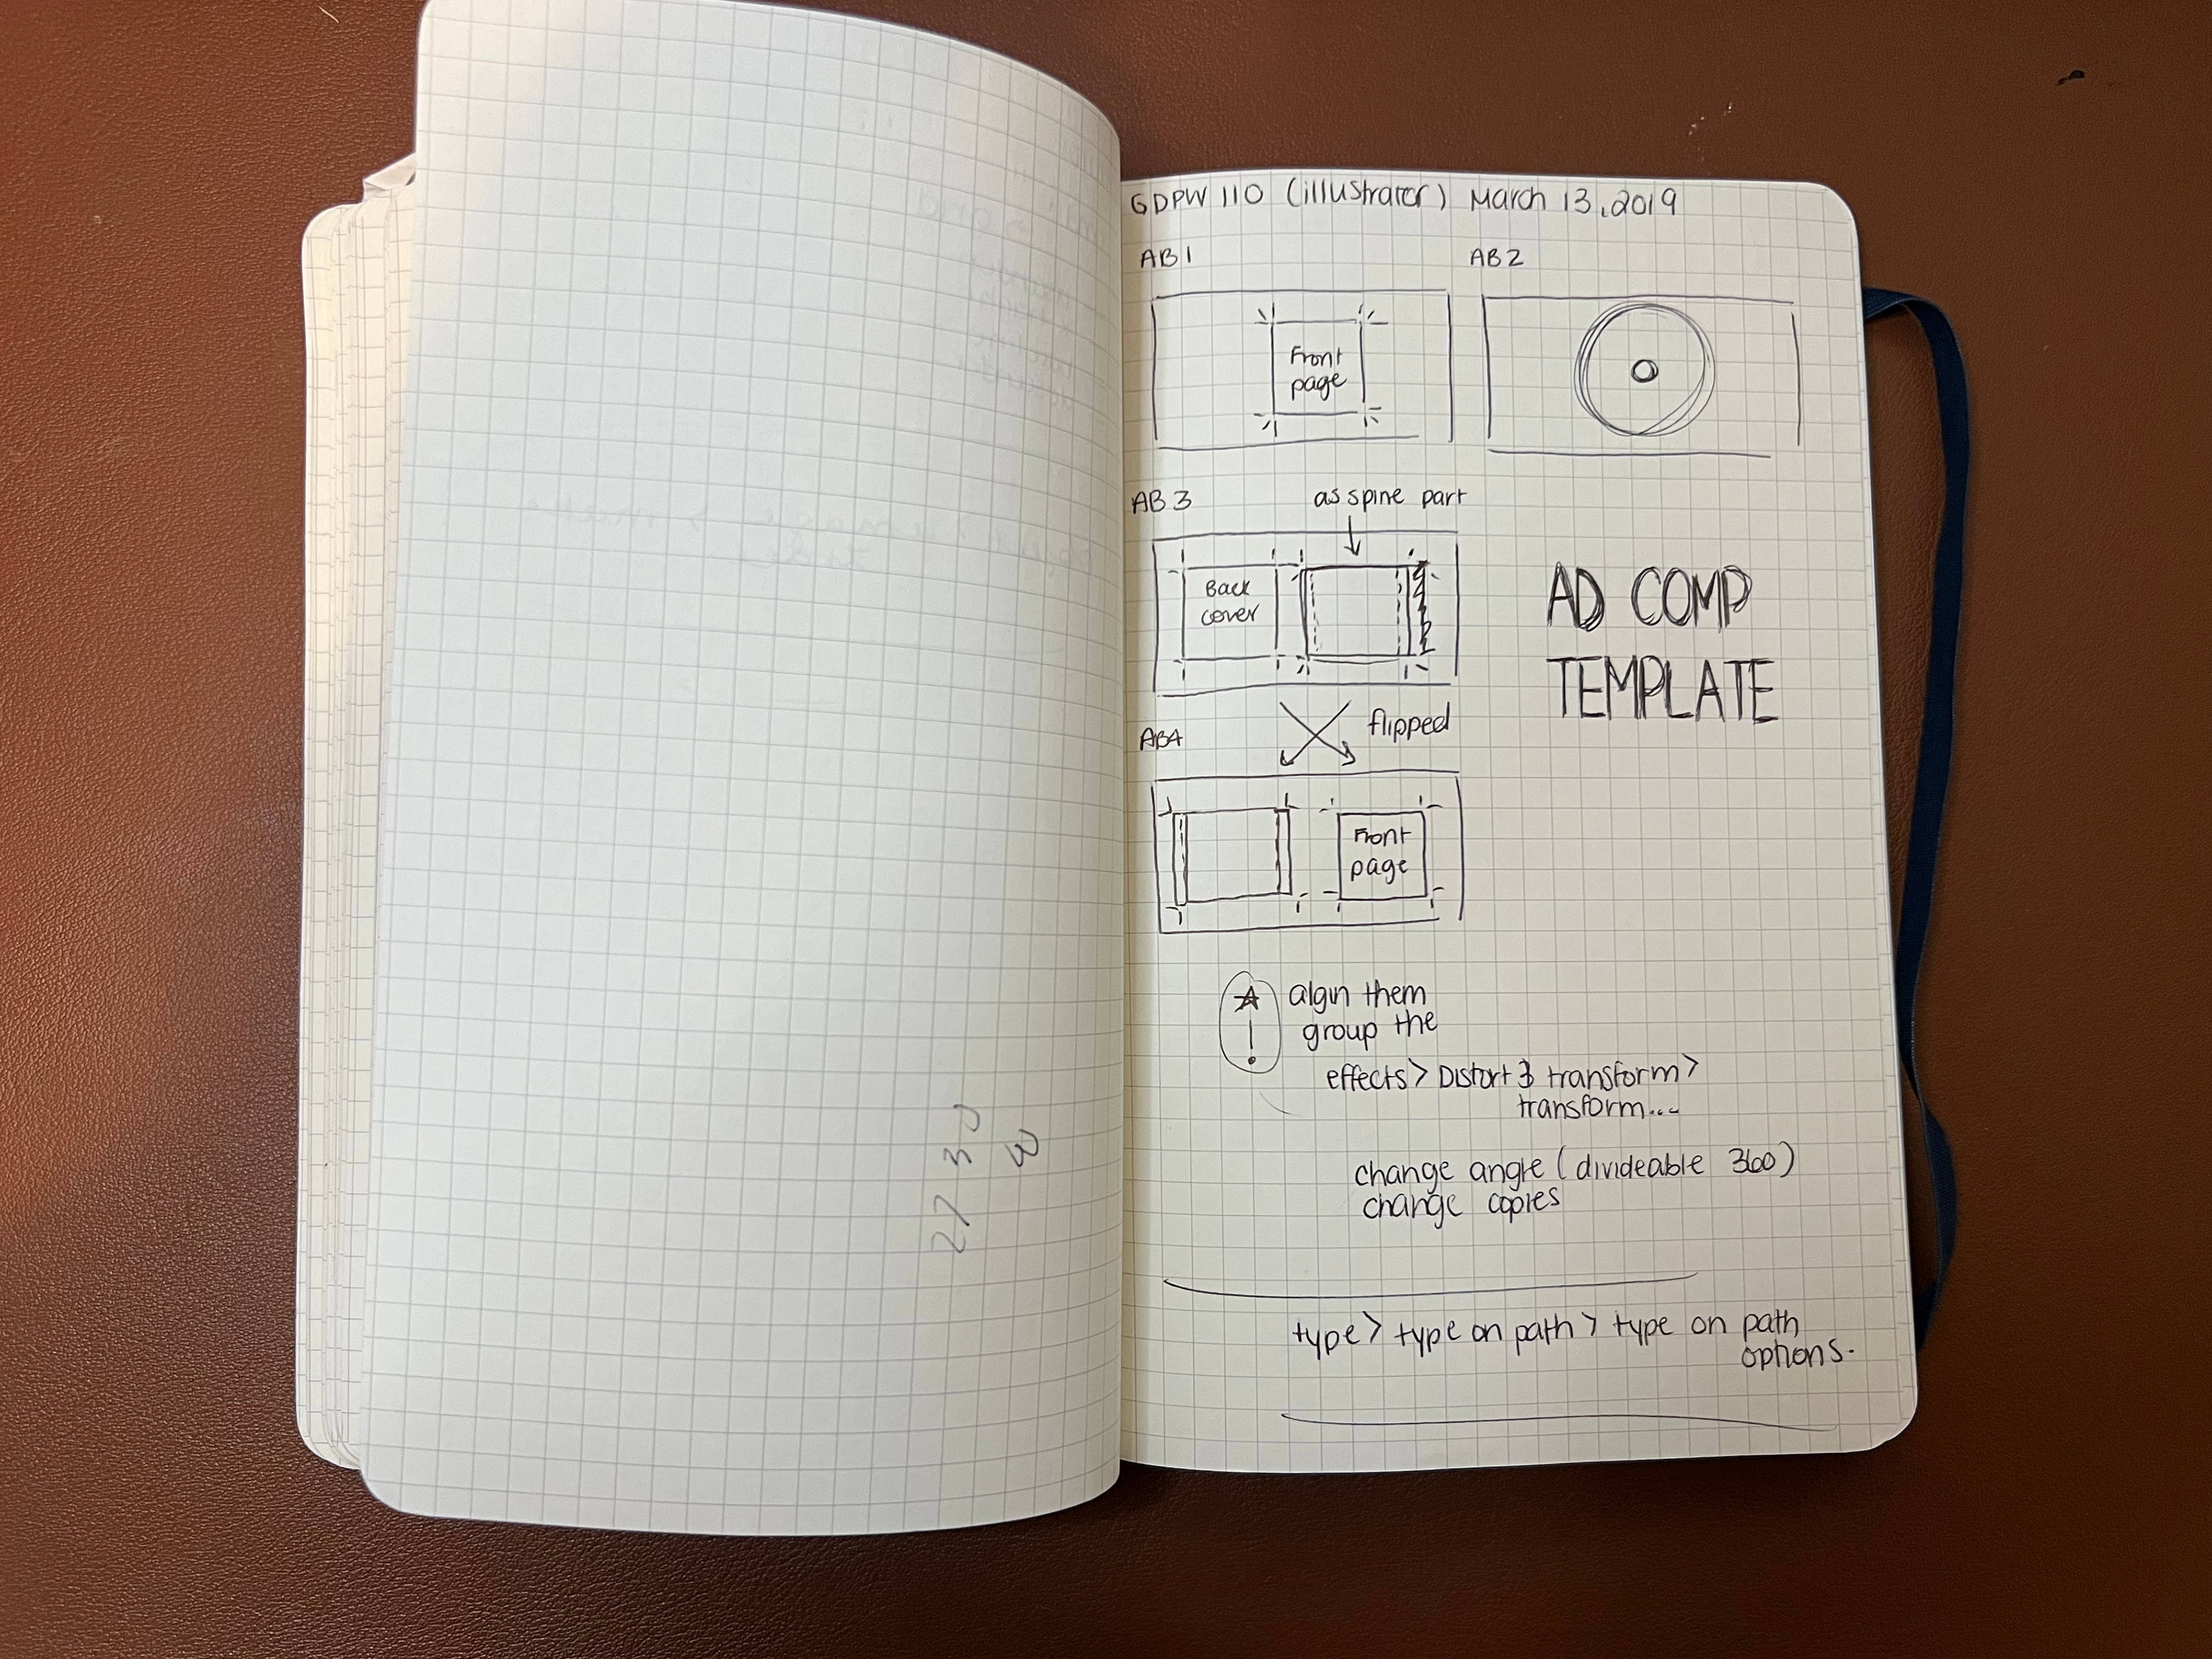 GDPW 110 (illustrator) March 13, 2019
AB 1
AB 2
Front
page
AB 3
as spine part
Back
cover
AD COMP
TEMPLATE
flipped
AB4
Front
page
algin them
group the
effects > Distort & transform >
transform...
change angle (divideable 360)
change copies
type > type on path > type on path
options.